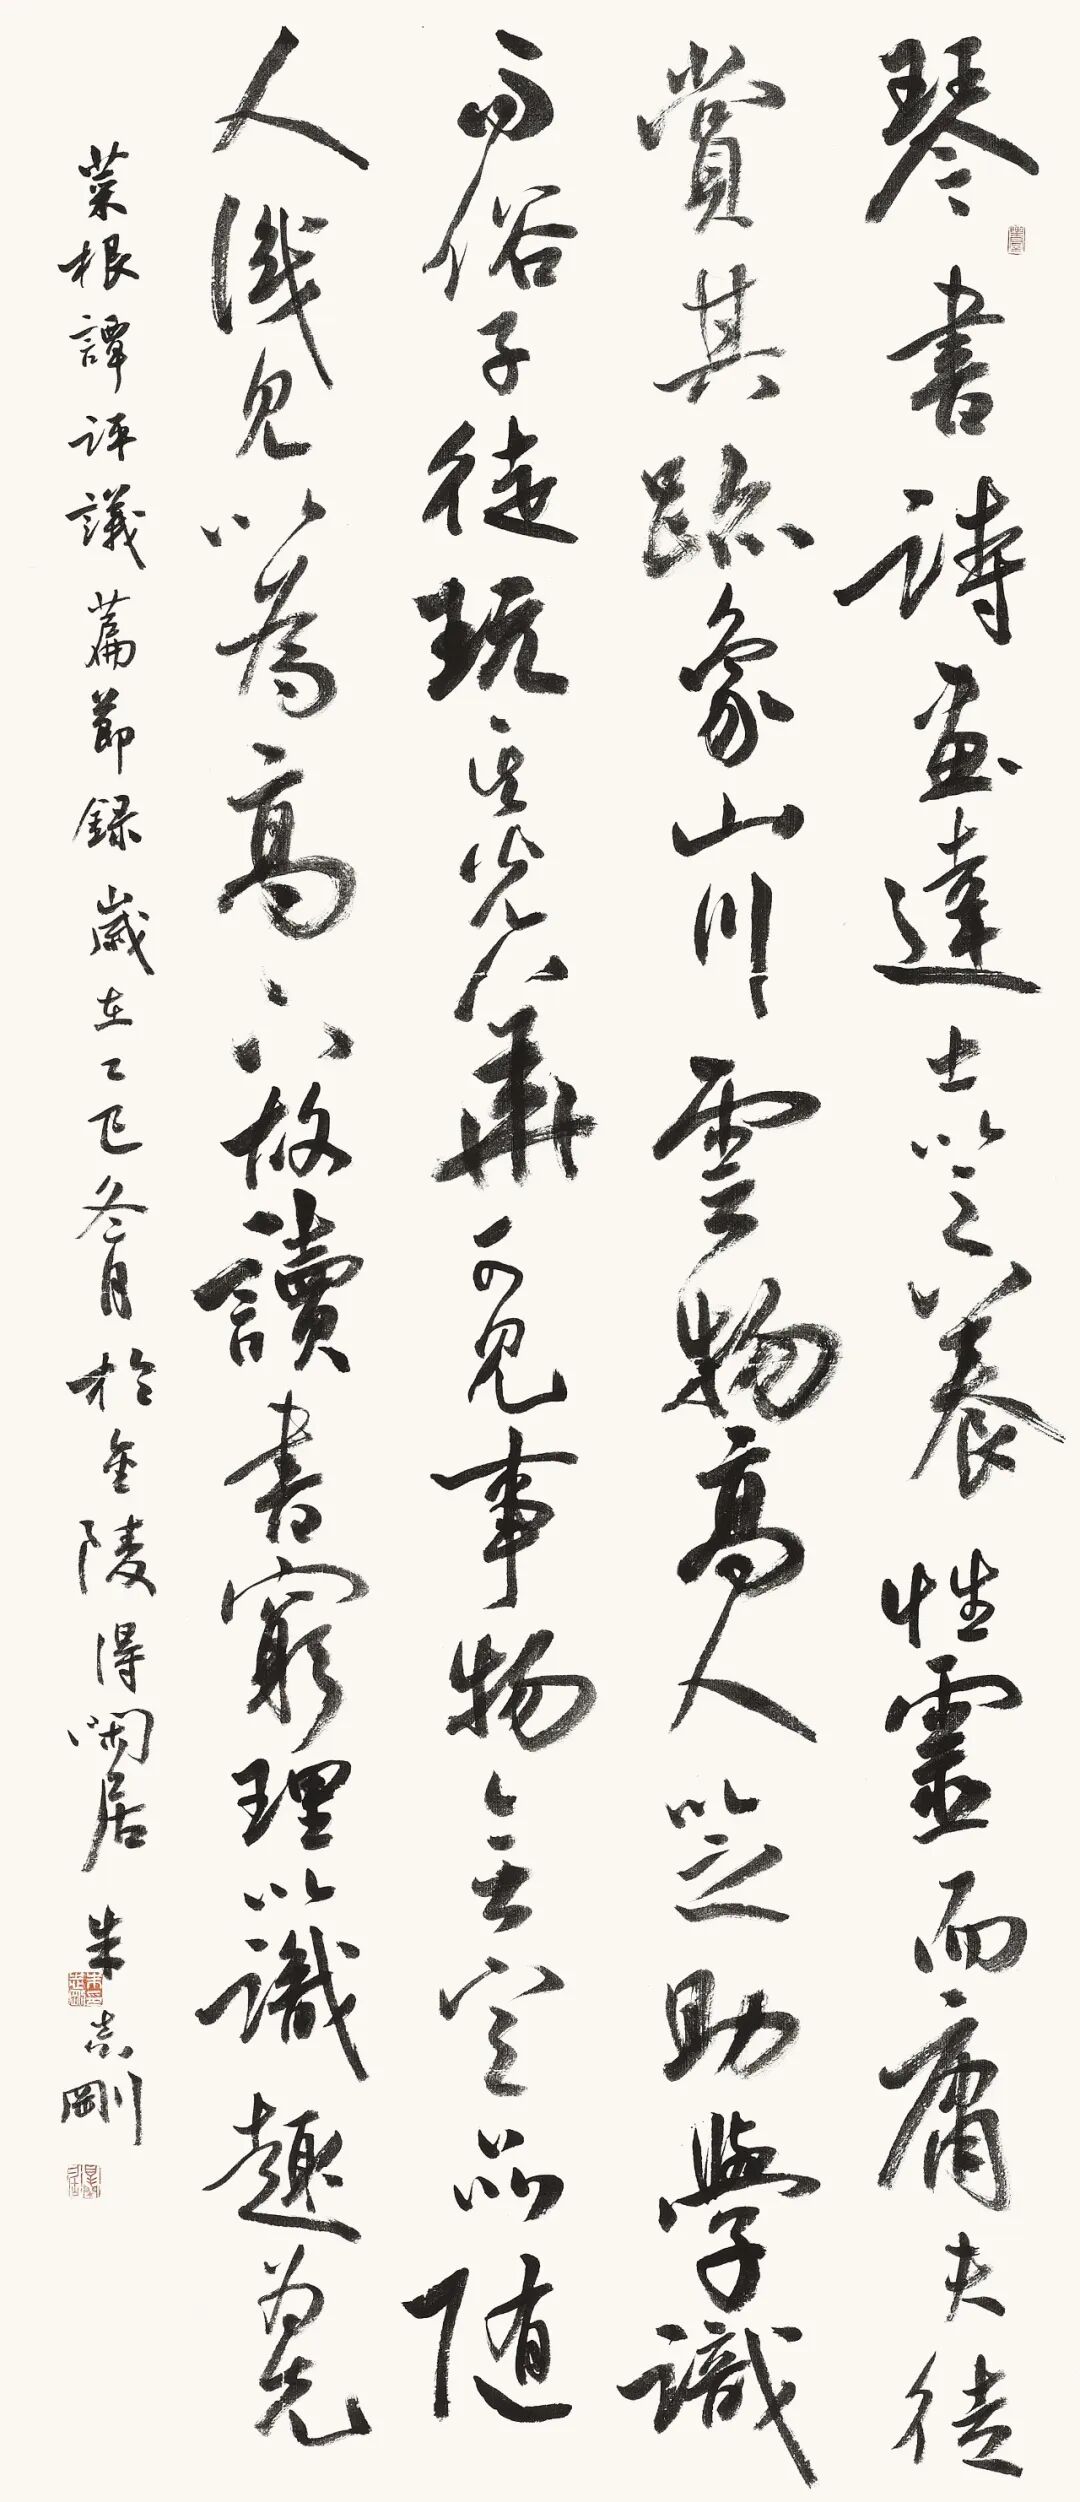 琴書詩畫達士以之養性靈而庸夫徒
賞其跡象山川雲物高人以之助學識
而俗子徒玩其光華可見事物無定品隨
人識見以為高下故讀書窮理以識趣為先
菜根譚評議篇節録歲在乙巳冬月於金陵得閑居朱志剛